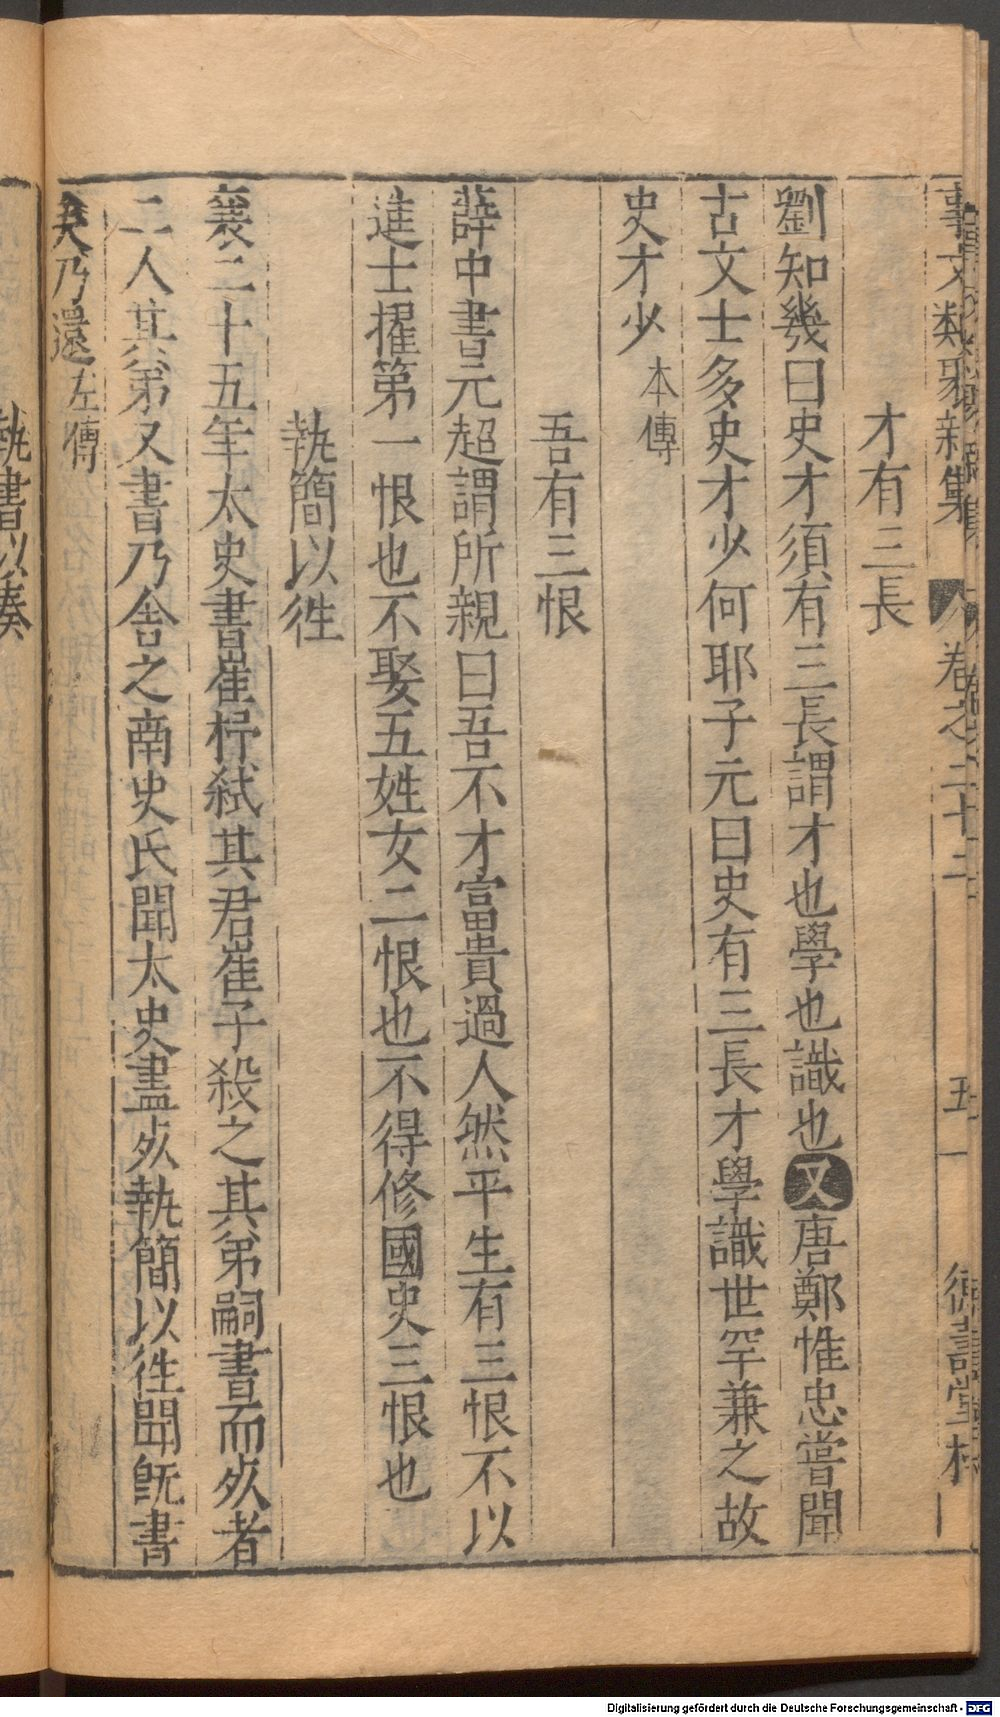 事文類聚新集 卷之二十二 五 德壽堂梓
才有三長
劉知幾曰史才須有三長謂才也學也識也文唐鄭惟忠嘗聞
古文士多史才少何耶子元曰史有三長才學識世罕兼之故
史才少 本傳
吾有三恨
薛中書元超謂所親曰吾不才富貴過人然平生有三恨不以
進士擢第一恨也不娶五姓女二恨也不得修國史三恨也
執簡以徃
襄二十五年太史書崔杼弑其君崔子殺之其弟嗣書而死者
二人其弟又書乃舍之南史氏聞太史盡死執簡以徃聞旣書
矣乃還 左傳
執書以奏
Digitalisierung gefördert durch die Deutsche Forschungsgemeinschaft - DFG